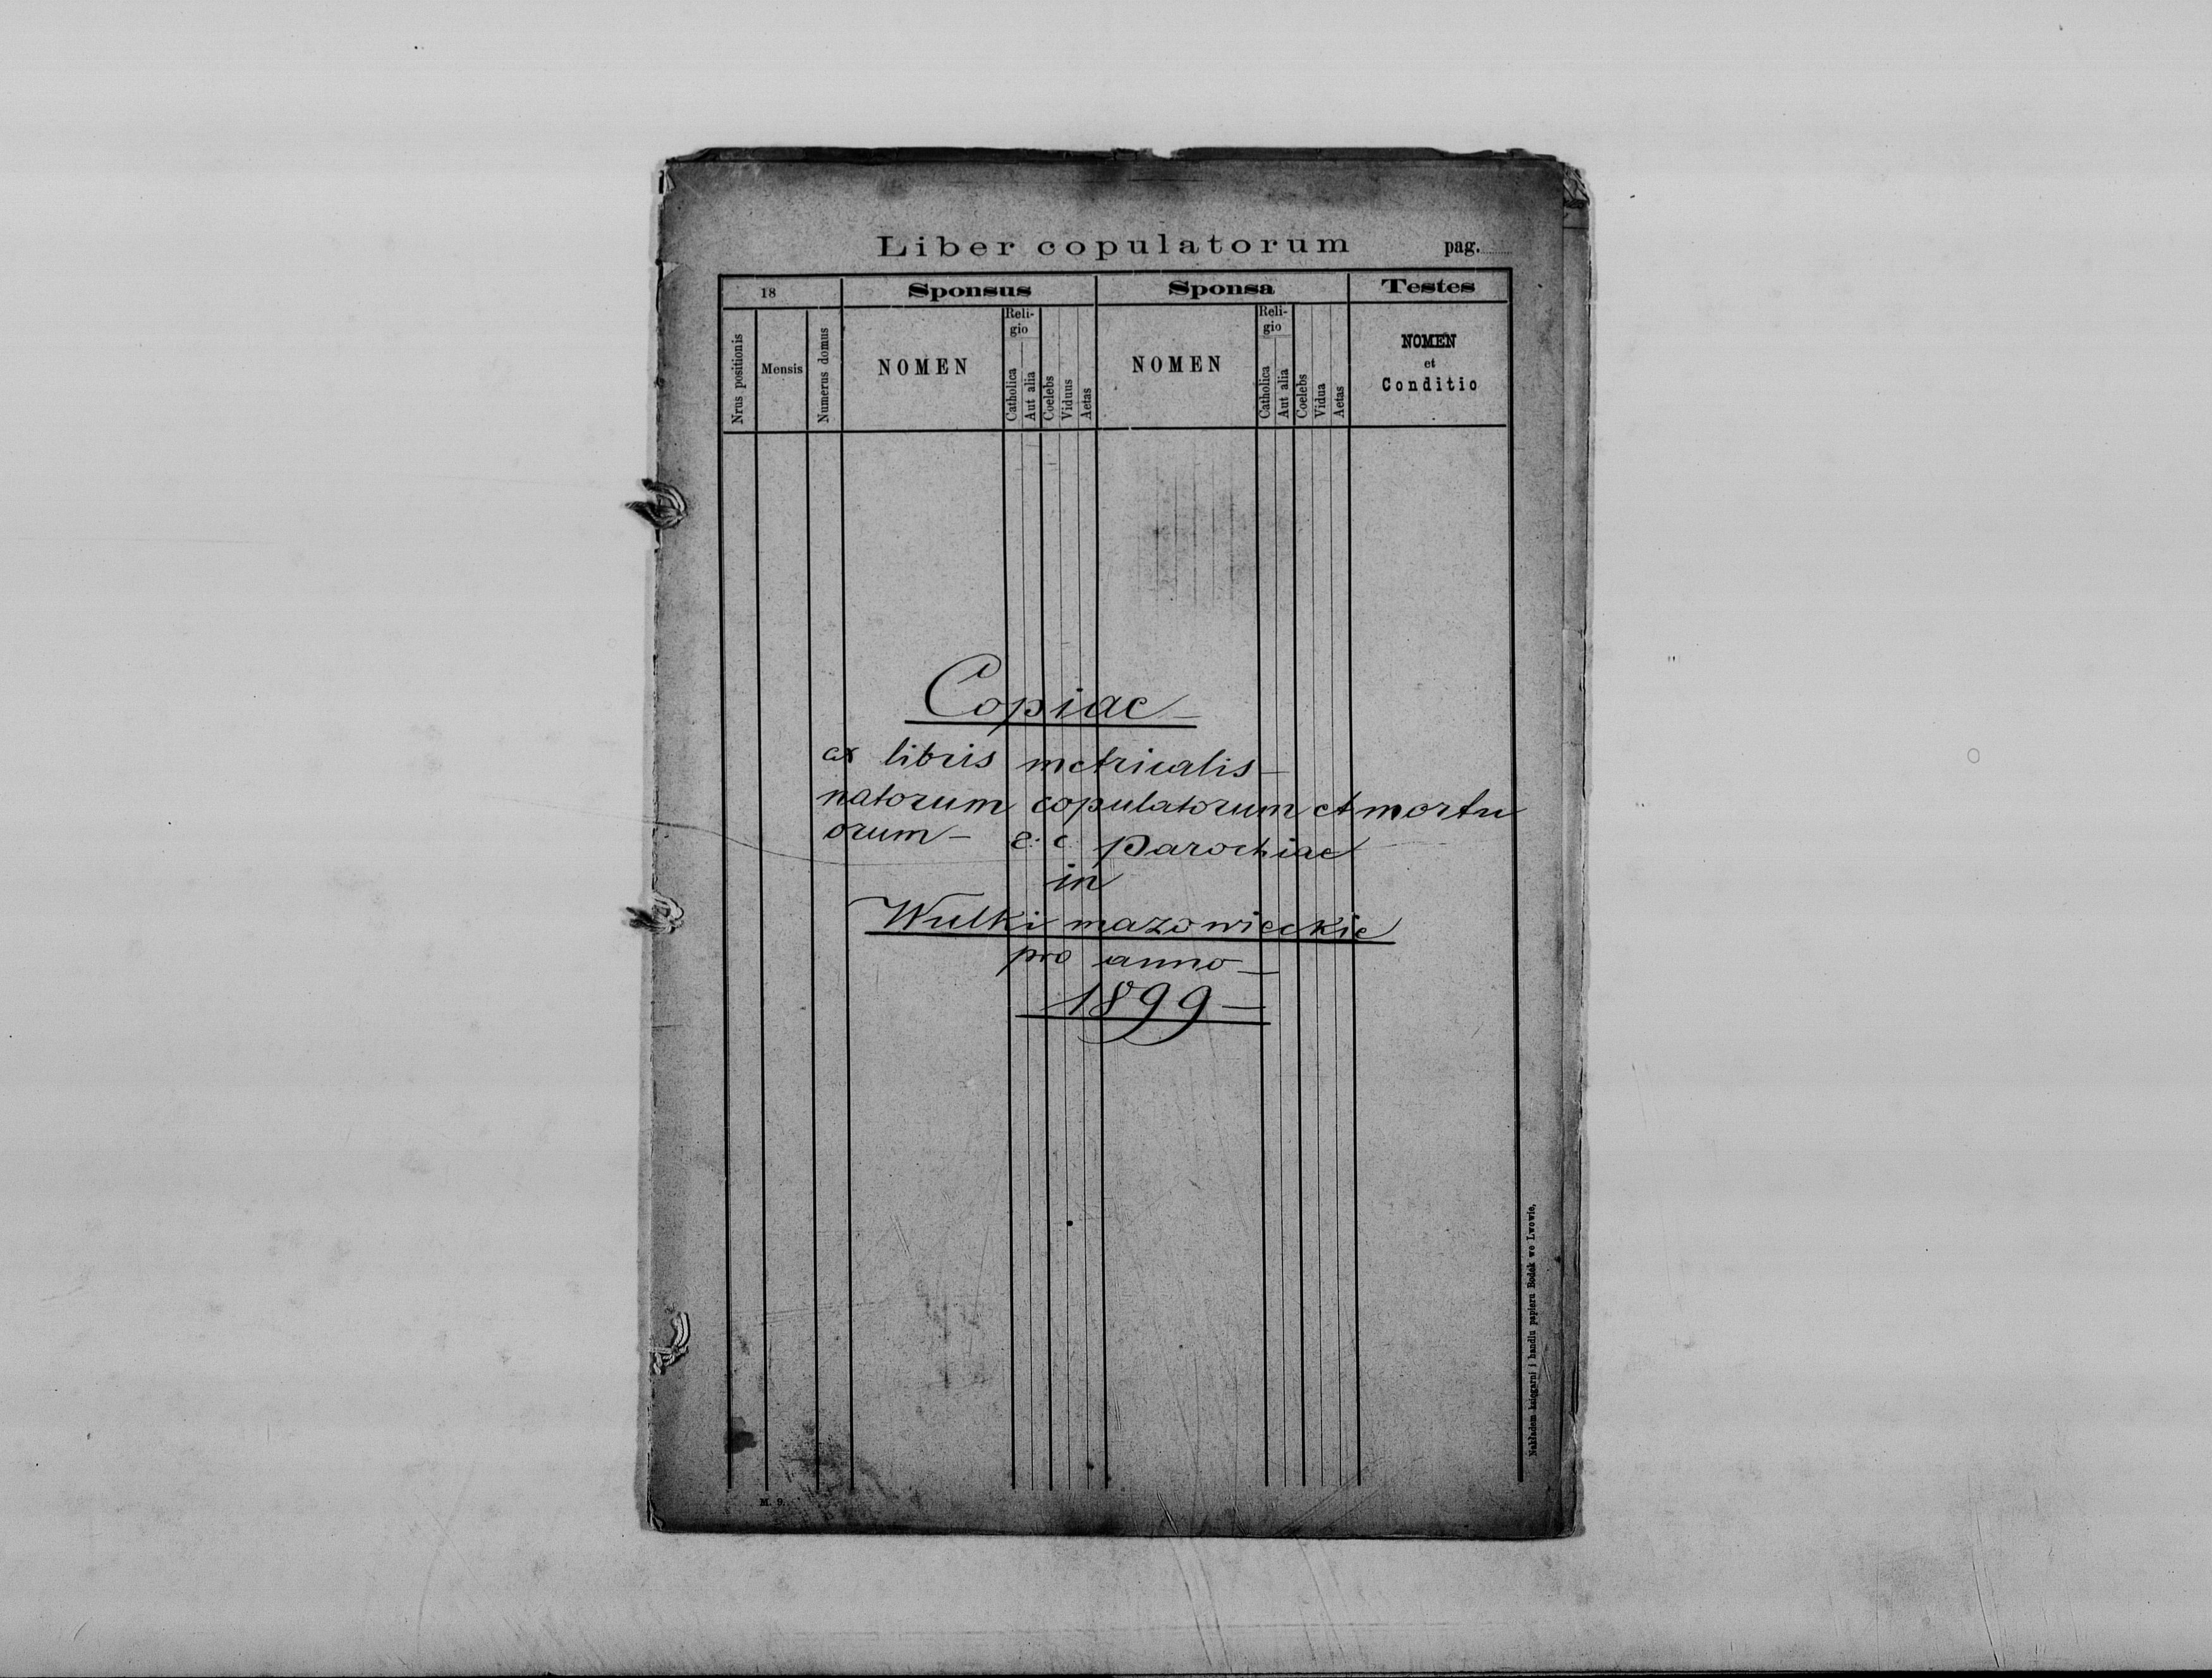 Liber copulatorum pag.
18 Sponsus Sponsa Testes
Nrus positionis
Mensis
Numerus domus
NOMEN
Reli-
gio
Catholica
Aut alia
Coelebs
Viduus
Aetas
NOMEN
Reli-
gio
Catholica
Aut alia
Coelebs
Vidua
Aetas
NOMEN
et
Conditio
Copiae
ex libris metricalis
natorum copulatorum et mortu
orum - Parochiae
in
Wulki mazowieckie
pro anno
1899
Nakładem księgarni i handlu papieru Bodek we Lwowie.
M. 9.